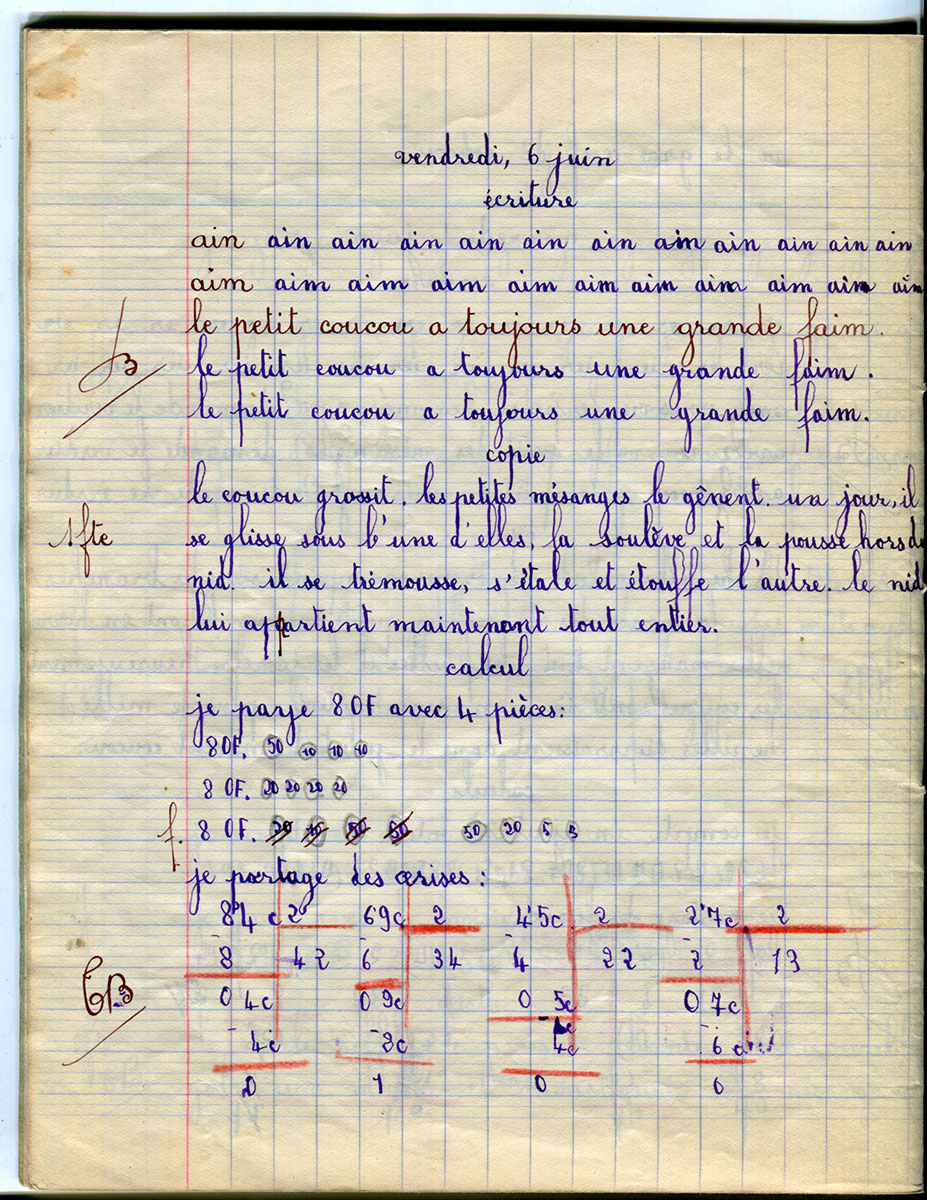 vendredi, 6 juin
écriture
ain ain ain ain ain ain ain ain ain ain ain ain
aim aim aim aim aim aim aim aim aim aim aim
le petit coucou a toujours une grande faim.
B
le petit coucou a toujours une grande faim.
le petit coucou a toujours une grande faim.
copie
le coucou grossit. les petites mésanges le gênent. un jour, il
1 fte se glisse sous l'une d'elles, la soulève et la pousse hors du
nid. il se trémousse, s'étale et étouffe l'autre. le nid
lui appartient maintenant tout entier.
calcul
je paye 80F avec 4 pièces:
80F. 50 10 10 10
80F. 20 20 20 20
f. 80F. 50 20 5 5
je partage des cerises:
84c 2 69c 2 45c 2 27c 2
-8 42 -6 34 -4 22 -2 13
04c 09c 0 5c 07c
TB -4c -2c -4c -6c
0 1 0 0